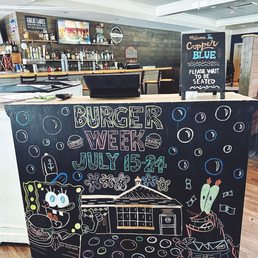 GREAT LAKES
Welcome to
COPPER
BLUE
PLEASE WAIT
TO BE
SEATED
BURGER
WEEK
JULY 15-24